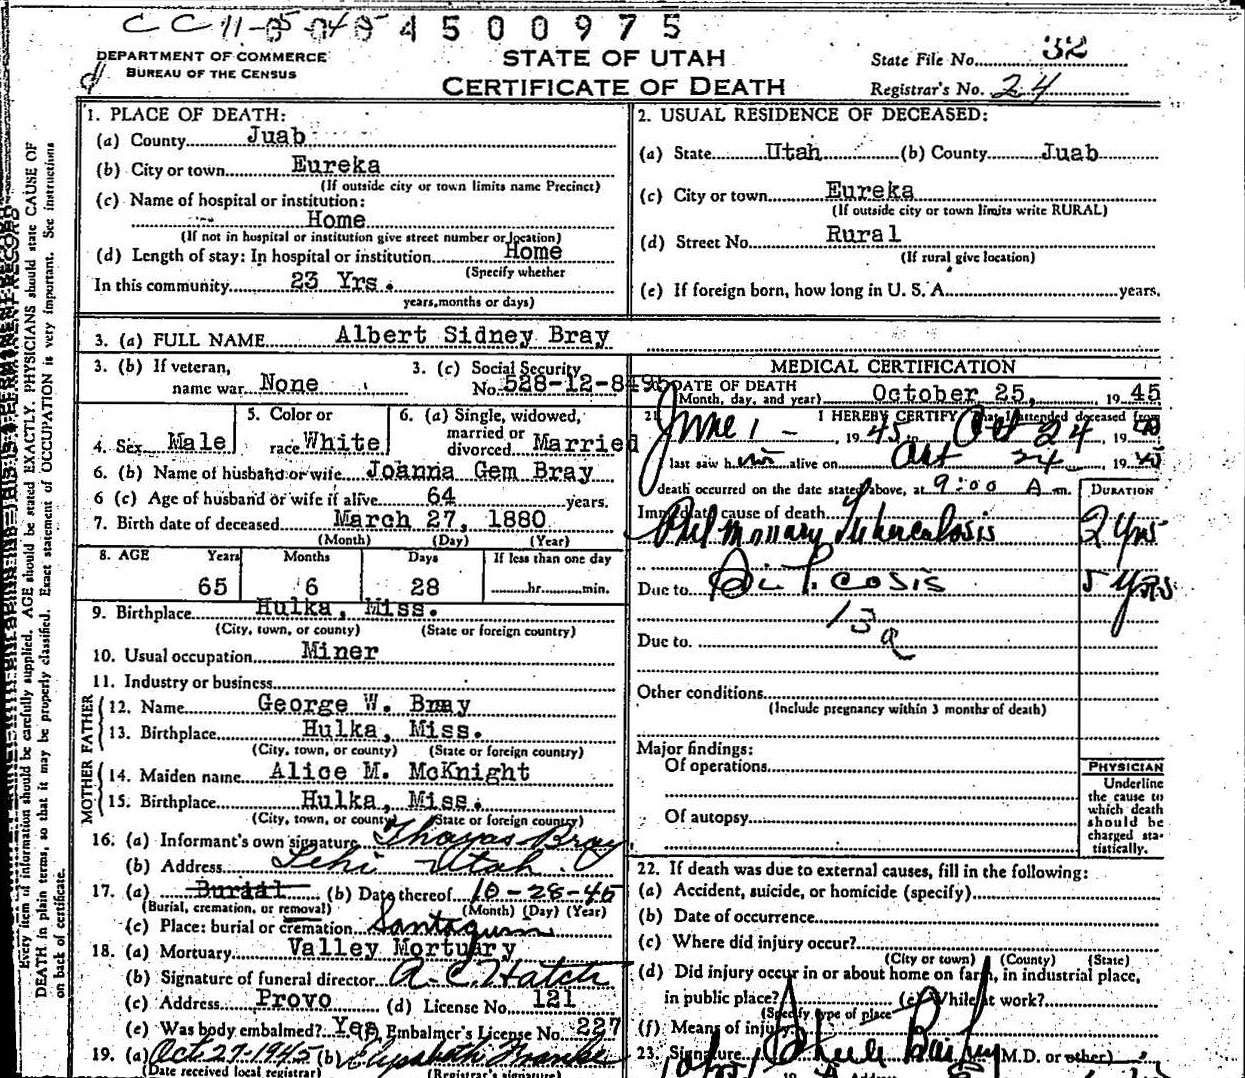 CC 11-05-045 4500975
DEPARTMENT OF COMMERCE
BUREAU OF THE CENSUS
STATE OF UTAH
CERTIFICATE OF DEATH
State File No. 32
Registrar's No. 24
Every item of information should be carefully supplied. AGE should be stated EXACTLY. PHYSICIANS should state CAUSE OF
DEATH in plain terms, so that it may be properly classified. Exact statement of OCCUPATION is very important. See instructions
on back of certificate.
1. PLACE OF DEATH:
(a) County Juab
(b) City or town Eureka
(If outside city or town limits name Precinct)
(c) Name of hospital or institution:
Home
(If not in hospital or institution give street number or location)
(d) Length of stay: In hospital or institution Home
(Specify whether
In this community 23 Yrs.
years, months or days)
2. USUAL RESIDENCE OF DECEASED:
(a) State Utah (b) County Juab
(c) City or town Eureka
(If outside city or town limits write RURAL)
(d) Street No. Rural
(If rural give location)
(e) If foreign born, how long in U. S. A. years.
3. (a) FULL NAME Albert Sidney Bray
3. (b) If veteran,
name war None
3. (c) Social Security
No. 528-12-8495
4. Sex Male
5. Color or
race White
6. (a) Single, widowed,
married or
divorced Married
6. (b) Name of husband or wife Joanna Gem Bray
6 (c) Age of husband or wife if alive 64 years.
7. Birth date of deceased March 27, 1880
(Month) (Day) (Year)
8. AGE Years Months Days If less than one day
65 6 28 hr. min.
9. Birthplace Hulka, Miss.
(City, town, or county) (State or foreign country)
10. Usual occupation Miner
11. Industry or business
FATHER
12. Name George W. Bray
13. Birthplace Hulka, Miss.
(City, town, or county) (State or foreign country)
MOTHER
14. Maiden name Alice M. McKnight
15. Birthplace Hulka, Miss.
(City, town, or county) (State or foreign country)
16. (a) Informant's own signature Thomas Bray
(b) Address Lehi Utah
17. (a) Burial (b) Date thereof 10-28-45
(Burial, cremation, or removal) (Month) (Day) (Year)
(c) Place: burial or cremation Santaquin
18. (a) Mortuary Valley Mortuary
(b) Signature of funeral director A. C. Hatch
(c) Address Provo (d) License No. 121
(e) Was body embalmed? Yes Embalmer's License No. 227
19. (a) Oct 27-1945 (b) Elizabeth Franke
(Date received local registrar) (Registrar's signature)
MEDICAL CERTIFICATION
20. DATE OF DEATH
(Month, day, and year) October 25, 19 45
21. I HEREBY CERTIFY that I attended deceased from
June 1 - 19 45 to Oct 24 19 45
last saw him alive on Oct 24 19 45
death occurred on the date stated above, at 9:00 A m.
DURATION
Immediate cause of death
Pulmonary Tuberculosis 2 yrs
Due to Silicosis 5 yrs
13a
Due to
Other conditions
(Include pregnancy within 3 months of death)
Major findings:
Of operations
Of autopsy
PHYSICIAN
Underline
the cause to
which death
should be
charged sta-
tistically.
22. If death was due to external causes, fill in the following:
(a) Accident, suicide, or homicide (specify)
(b) Date of occurrence
(c) Where did injury occur?
(City or town) (County) (State)
(d) Did injury occur in or about home on farm, in industrial place,
in public place? (e) While at work?
(Specify type of place)
(f) Means of injury
23. Signature Steele Bailey M.D. or other)
Address